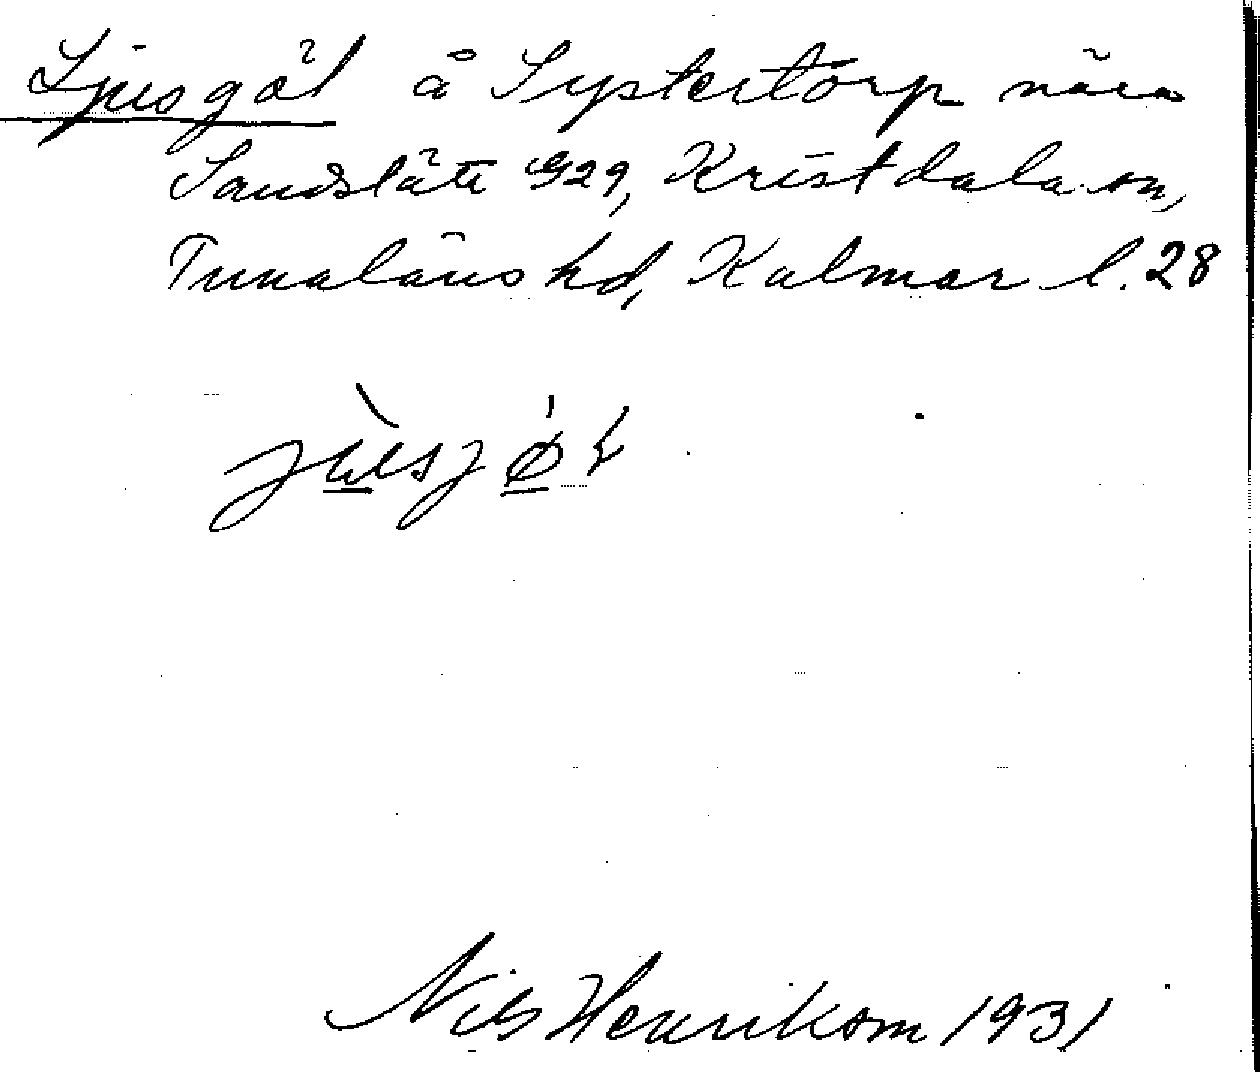 Ljusgöl å Systertorp nära
Sandslätt 929, Kristdala sn,
Tunaläns hd, Kalmar l. 28
Nils Henrikson 1931